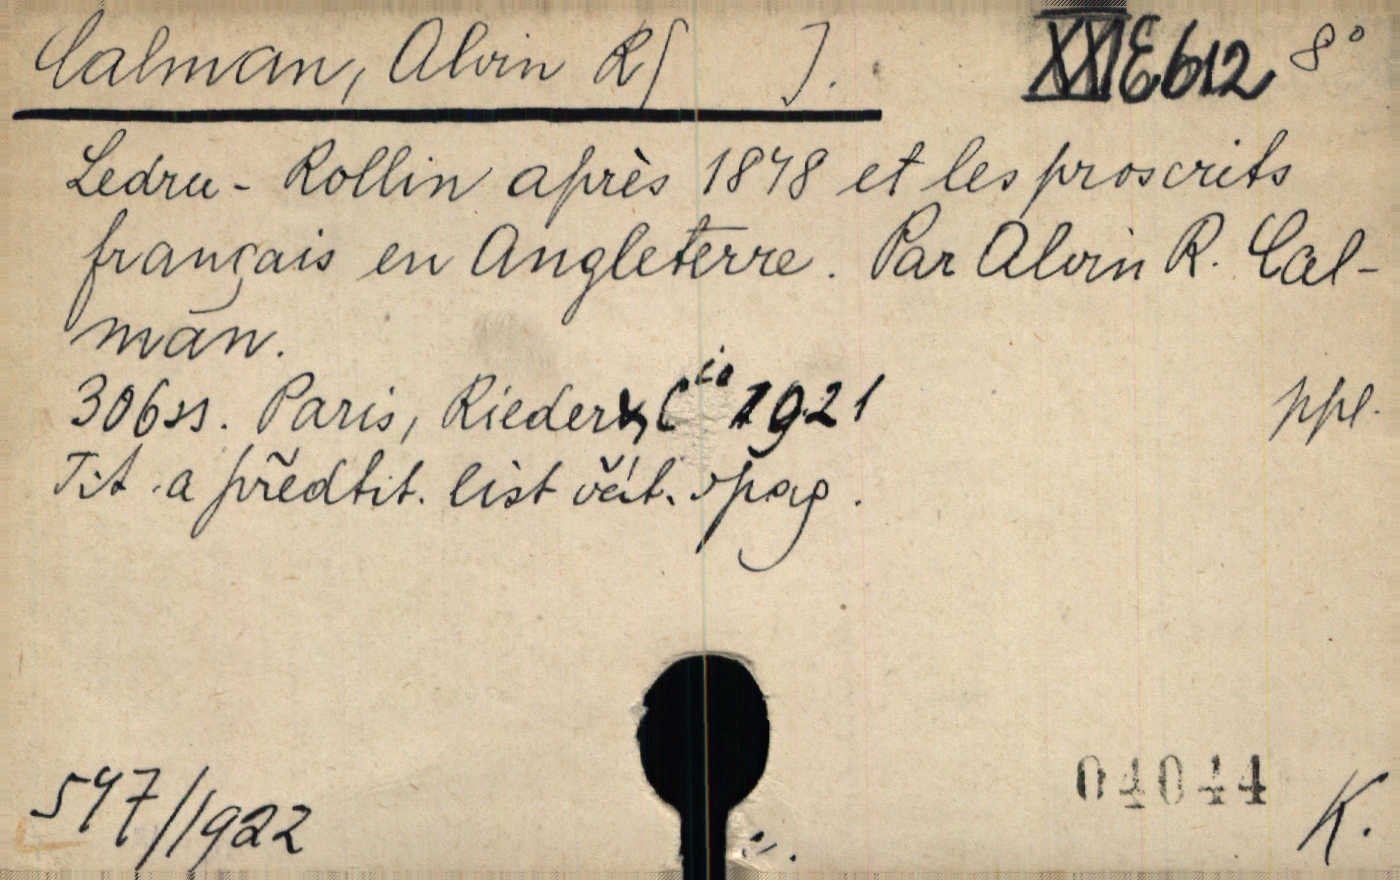 Calman, Alvin R[ ]. XXI E 612 8°
Ledru-Rollin après 1848 et les proscrits
français en Angleterre. Par Alvin R. Cal-
man.
306 ss. Paris, Rieder & Cie 1921 ppl.
Tit. a předtit. list váz. spag.
547/1922
04044
K.